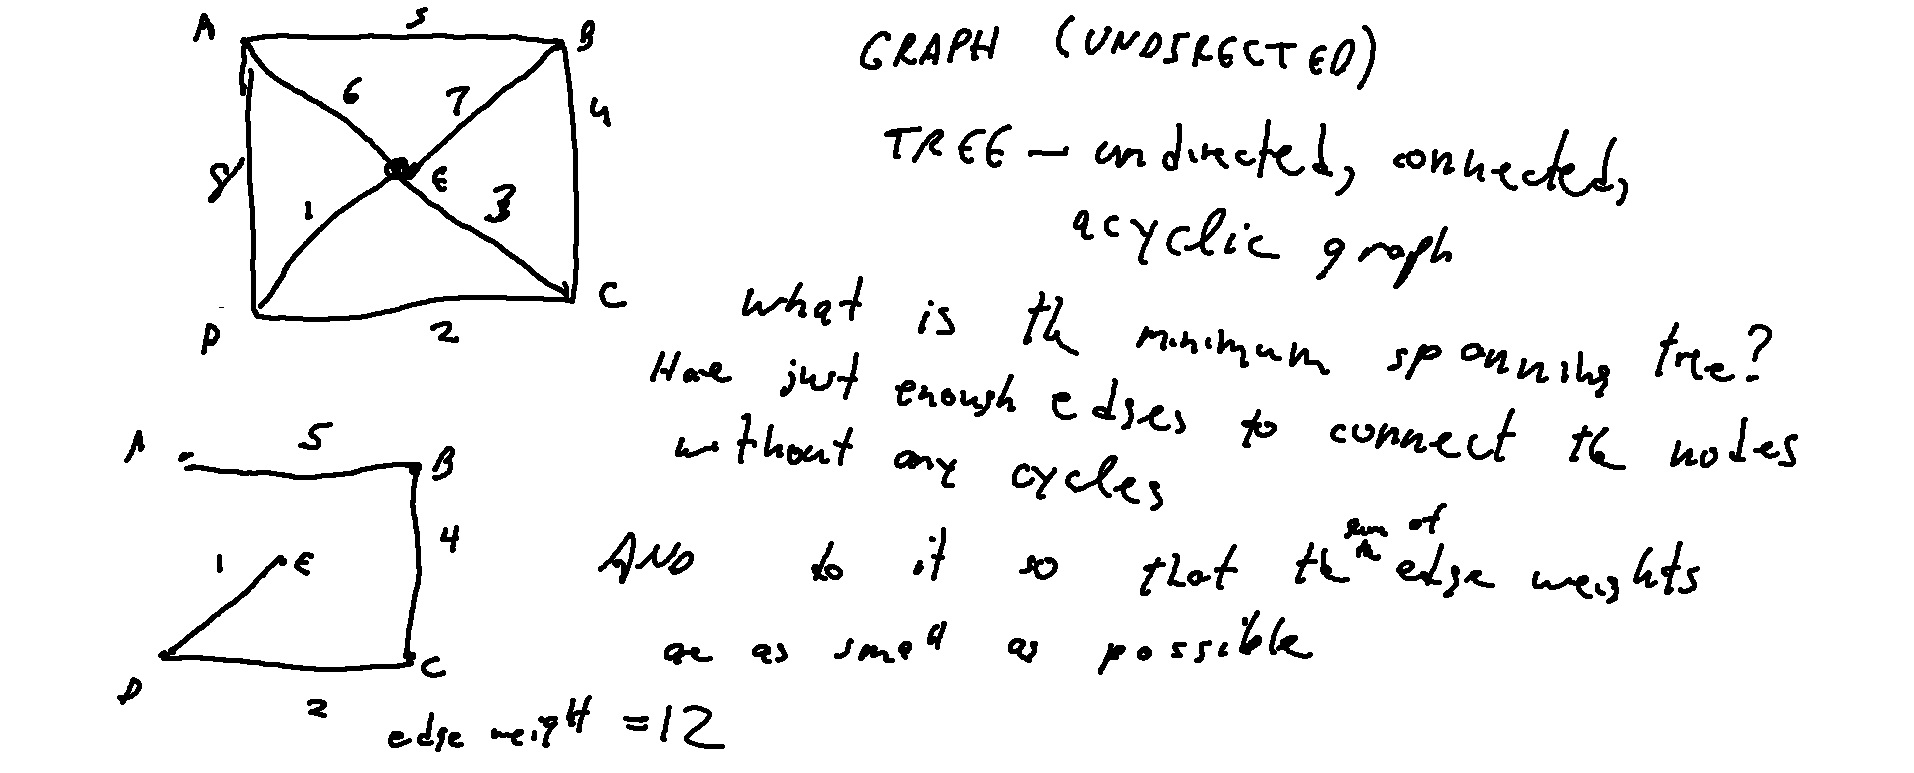 A 5 B
GRAPH (UNDIRECTED)
6 7 4
TREE - undirected, connected,
8 E
1 3
acyclic graph
D 2 C
What is the minimum spanning tree?
Have just enough edges to connect the nodes
without any cycles
A 5 B
4
1 E
AND to it so that the sum of the edge weights
are as small as possible
D 2 C
edge weight = 12